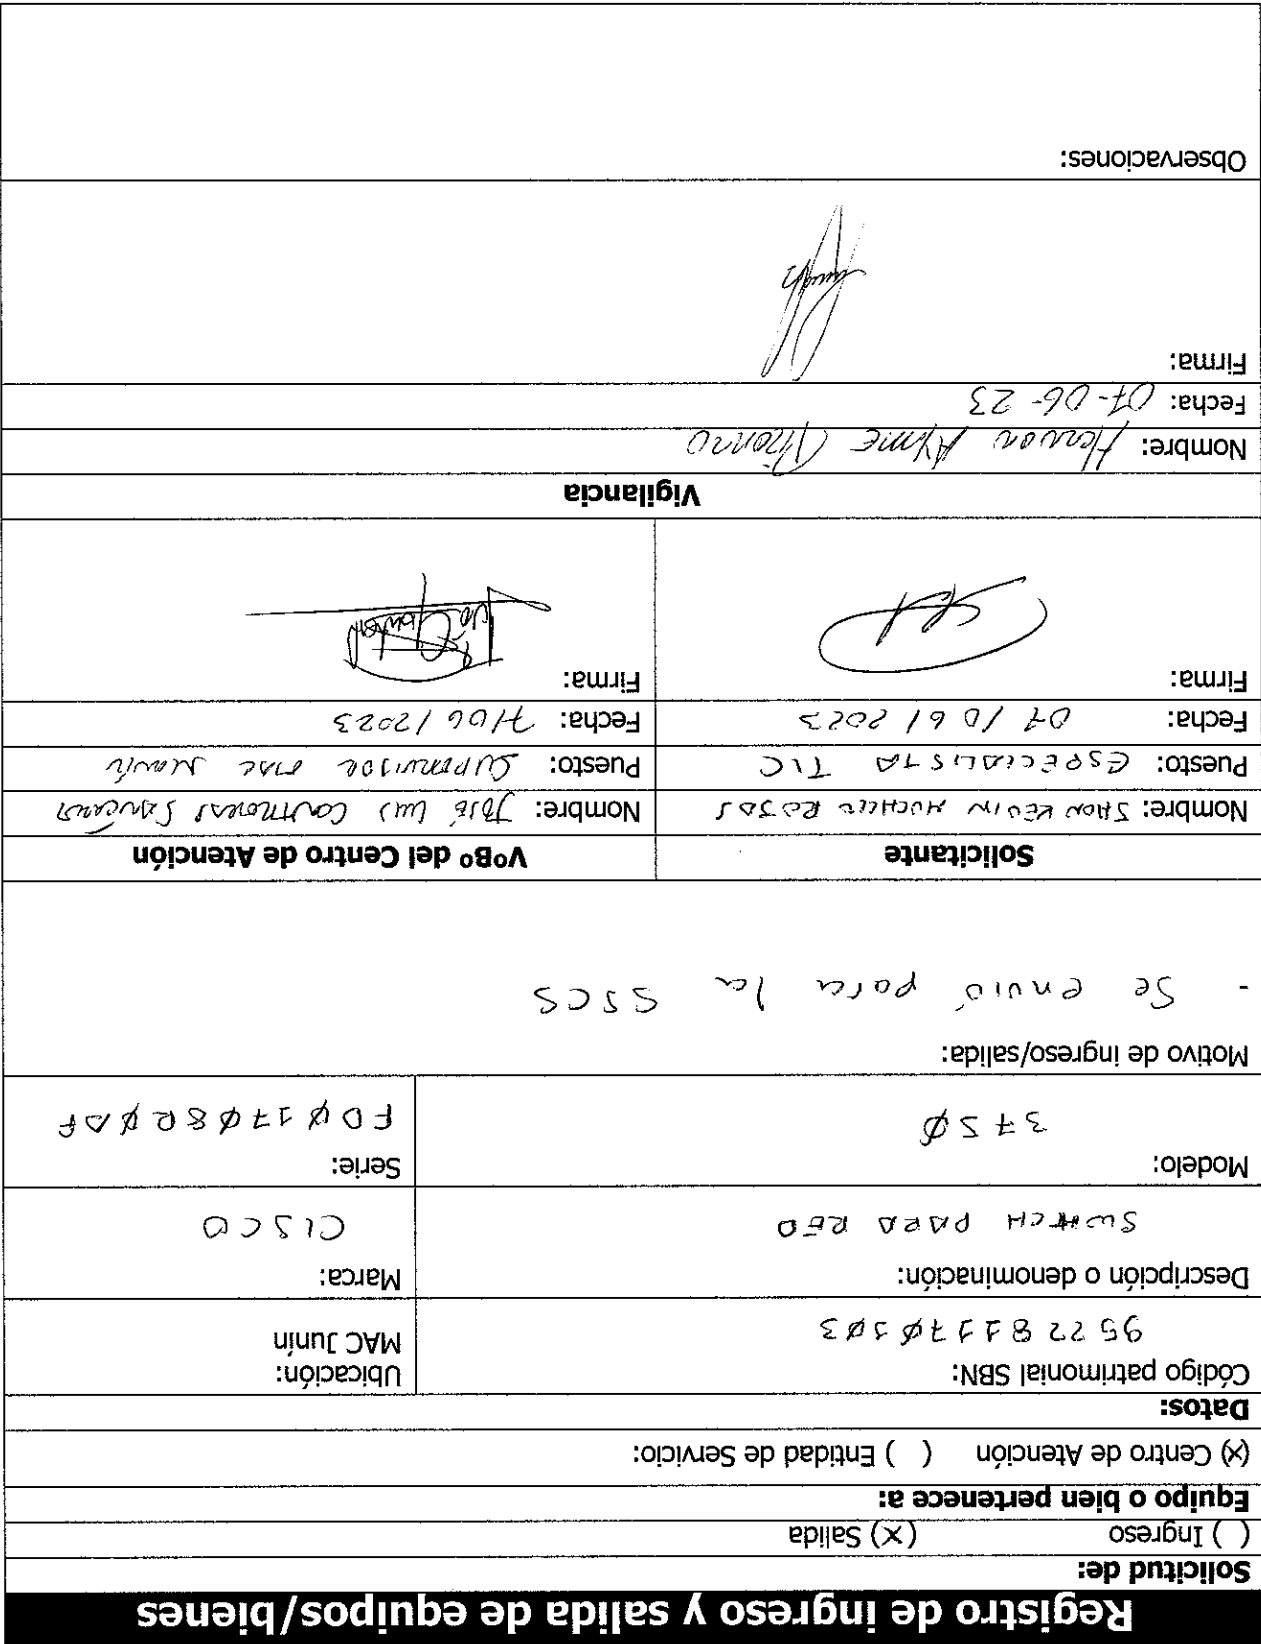 Registro de ingreso y salida de equipos/bienes
Solicitud de:
( ) Ingreso (X) Salida
Equipo o bien pertenece a:
(X) Centro de Atención ( ) Entidad de Servicio:
Datos:
Código patrimonial SBN:
Ubicación:
MAC Junín
Descripción o denominación:
SWITCH PARA RED
Marca:
CISCO
Modelo:
375Ø
Serie:
FDØ17Ø8RØAF
Motivo de ingreso/salida:
- Se envió para la SSCS
Solicitante
Nombre: JHON KEVIN ROJAS
Puesto: ESPECIALISTA TIC
Fecha: 07/06/2023
Firma:
VºBº del Centro de Atención
Nombre: JOSÉ LUIS CONTRERAS
Puesto: SUPERVISOR MAC JUNÍN
Fecha: 7/06/2023
Firma:
Vigilancia
Nombre:
Fecha: 07-06-23
Firma:
Observaciones: